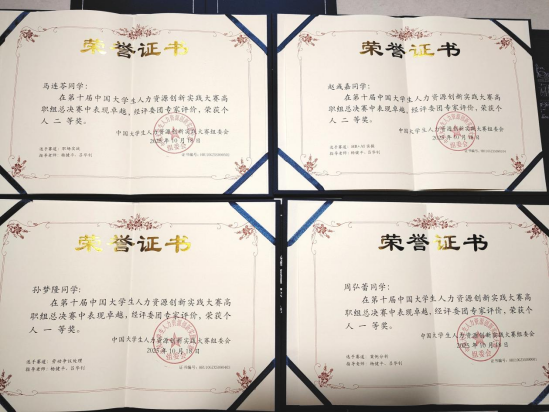 荣誉证书
马连苓同学:
在第十届中国大学生人力资源创新实践大赛高
职组总决赛中表现卓越,经评委团专家评价,荣获个
人二等奖。
中国大学生人力资源创新实践大赛组委会
2025年10月18日
选手赛道:
指导老师:杨婕平、吕华钊
荣誉证书
赵彧嘉同学:
在第十届中国大学生人力资源创新实践大赛高
职组总决赛中表现卓越,经评委团专家评价,荣获个
人二等奖。
中国大学生人力资源创新实践大赛组委会
2025年10月18日
选手赛道:
指导老师:杨婕平、吕华钊
荣誉证书
孙梦隆同学:
在第十届中国大学生人力资源创新实践大赛高
职组总决赛中表现卓越,经评委团专家评价,荣获个
人一等奖。
中国大学生人力资源创新实践大赛组委会
2025年10月18日
选手赛道:劳动争议处理
指导老师:杨婕平、吕华钊
荣誉证书
周弘蕾同学:
在第十届中国大学生人力资源创新实践大赛高
职组总决赛中表现卓越,经评委团专家评价,荣获个
人一等奖。
中国大学生人力资源创新实践大赛组委会
2025年10月18日
选手赛道:案例分析
指导老师:杨婕平、吕华钊